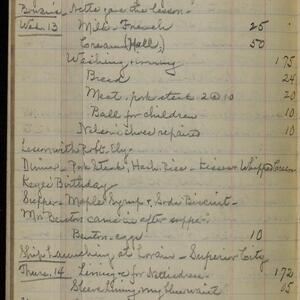 Nettie gave the lesson.
Wed. 13 Milk - French 25
Cream (Hall) 50
Washing & ironing 1 75
Bread 24
Meat, pork steak 2 @ 10 20
Ball for children 10
Nelson's shoes repaired 10
Lesson with
Dinner - Pork Steak, Hash, Rice - Whipped Cream
Birthday
Supper - Maple Syrup & Soda Biscuit -
Mrs Benton came in after supper.
Benton - eggs 10
Ship Launching at Lorain - Superior City
Thurs. 14 Lining for Nettie dress 1 72
Sleeve lining my blue waist 05